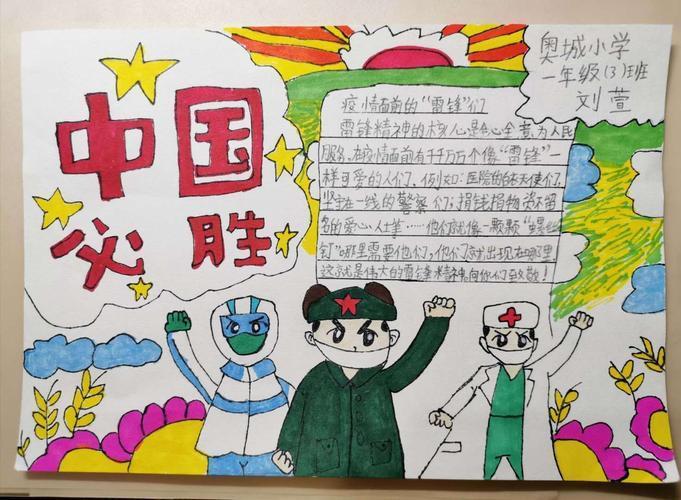 中国
必胜
奥城小学
一年级(3)班
刘萱
疫情面前的“雷锋”们
雷锋精神的核心是心全意为人民
服务。在疫情面前有千千万万个像“雷锋”一
样可爱的人们、例如：医院的白衣天使们、
坚守在一线的警察们；捐钱捐物资不留
名的爱心人士……他们就像一颗颗“螺丝
钉”哪里需要他们，他们就出现在哪里
这就是伟大的雷锋精神。向你们致敬！